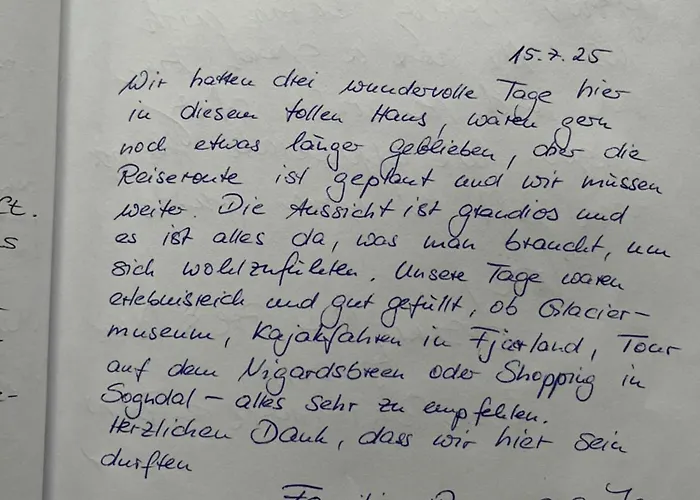 15.7.25
Wir hatten drei wundervolle Tage hier
in diesem tollen Haus, wären gern
noch etwas länger geblieben, aber die
Reiseroute ist geplant und wir müssen
weiter. Die Aussicht ist grandios und
es ist alles da, was man braucht, um
sich wohlzufühlen. Unsere Tage waren
erlebnisreich und gut gefüllt, ob Glacier-
museum, Kajakfahren in Fjærland, Tour
auf dem Nigardsbreen oder Shopping in
Sogndal – alles sehr zu empfehlen.
Herzlichen Dank, dass wir hier sein
durften